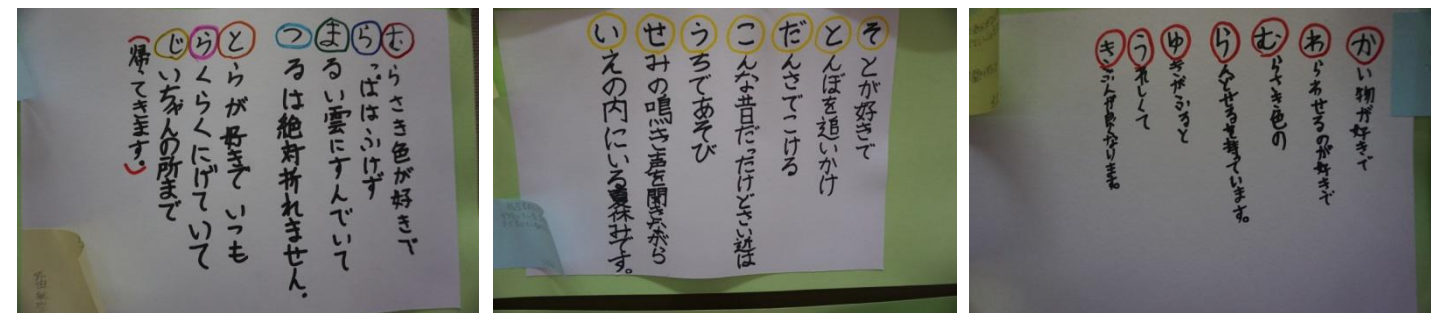 むらさき色が好きで
らっぱはふけず
まるい雲にすんでいて
つるは絶対折れません.
とらが好きでいつも
らくらくにげていて
じいちゃんの所まで
(帰ってきます。)
そとが好きで
とんぼを追いかけ
だんさでこける
こんな昔だったけどさい近は
うちであそび
せみの鳴き声を聞きながら
いえの内にいる夏休みです。
かい物が好きで
わらわせるのが好きで
むらさき色の
らんどせるを持っています。
ゆきがふると
うれしくて
きぶんが良くなります。